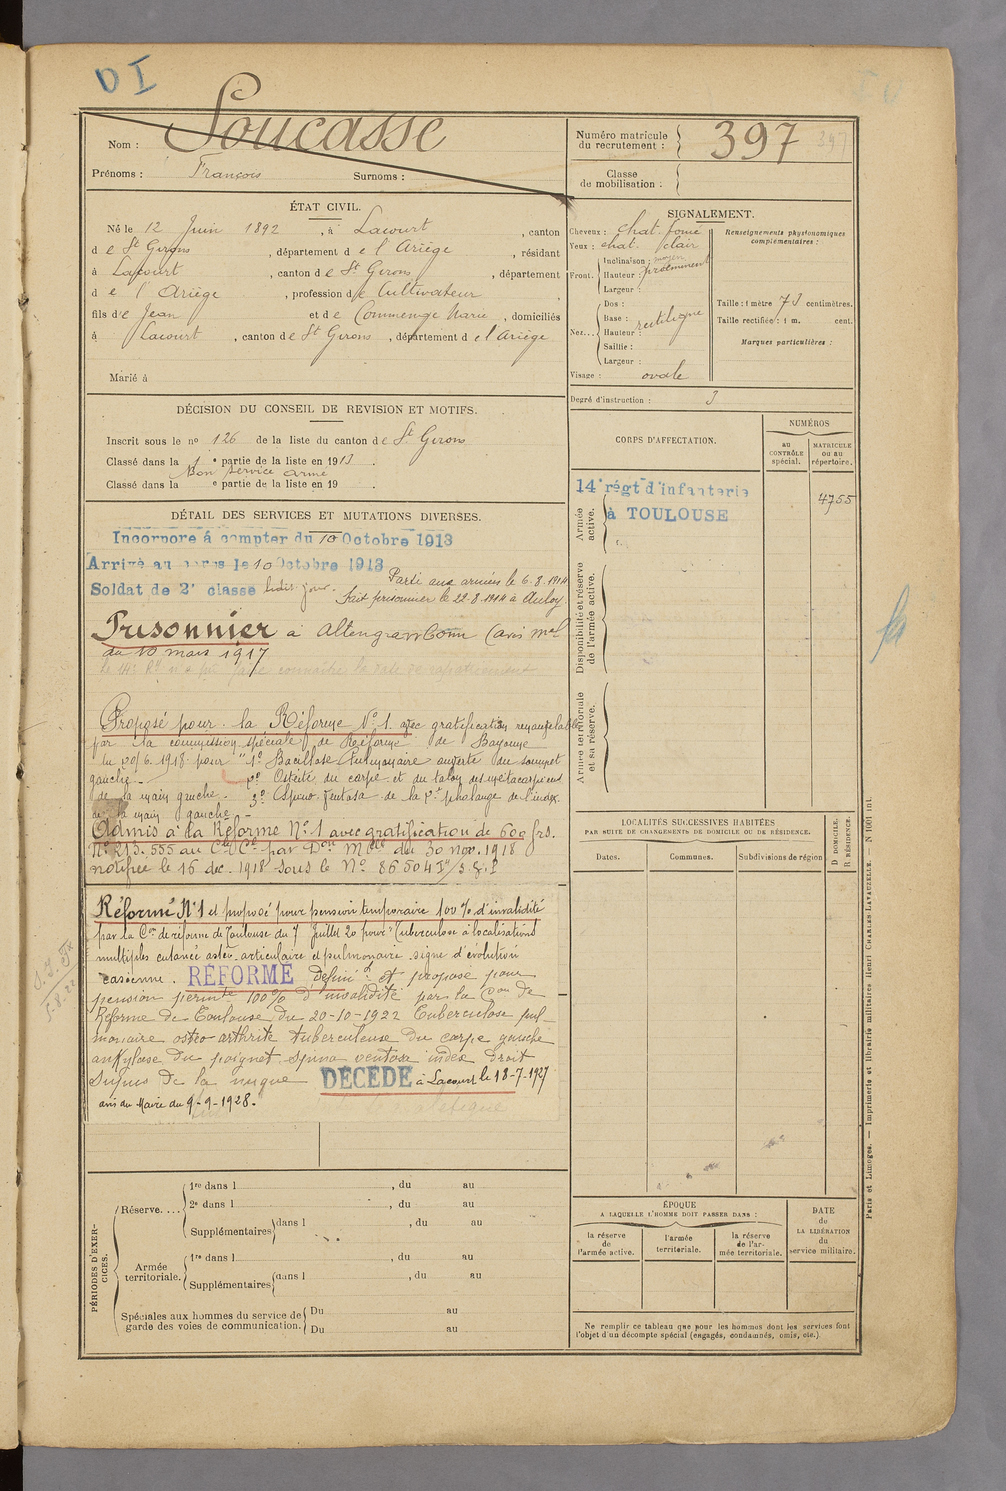 D I
Nom : Soucasse
Prénoms : François Surnoms :
Numéro matricule du recrutement : 397 397
Classe de mobilisation :
ÉTAT CIVIL.
Né le 12 Juin 1892, à Lacourt, canton
de St Girons, département de l'Ariège, résidant
à Lacourt, canton de St Girons, département
de l'Ariège, profession de Cultivateur
fils de Jean et de Commenge Marie, domiciliés
à Lacourt, canton de St Girons, département de l'Ariège
Marié à
SIGNALEMENT.
Cheveux : chat. foncé
Yeux : chat. clair
Front.
Inclinaison : moyen
Hauteur : proéminent
Largeur :
Nez...
Dos :
Base : rectiligne
Hauteur :
Saillie :
Largeur :
Visage : ovale
Renseignements physionomiques complémentaires :
Taille : 1 mètre 73 centimètres.
Taille rectifiée : 1 m. cent.
Marques particulières :
Degré d'instruction : 3
DÉCISION DU CONSEIL DE REVISION ET MOTIFS.
Inscrit sous le n° 126 de la liste du canton de St Girons
Classé dans la 1e partie de la liste en 1913.
Bon service armé
Classé dans la e partie de la liste en 19
DÉTAIL DES SERVICES ET MUTATIONS DIVERSES.
Incorporé à compter du 10 Octobre 1913
Arrivé au corps le 10 Octobre 1913
Soldat de 2e classe ledit jour. Parti aux armées le 6.8.1914
Fait prisonnier le 22.8.1914 à
Prisonnier à (avis mel
du 10 mars 1917
Proposé pour la Réforme N° 1 avec gratification renouvelable
par la commission spéciale de Réforme de Bayonne
du 6.1918 pour "1° Bacillose Pulmonaire ouverte du sommet
gauche - 2° Ostéite du carpe et du talon des métacarpiens
de la main gauche - 3° Spina Ventosa de la phalange de l'index
de la main gauche -
Admis à la Réforme N° 1 avec gratification de 600 frs.
N° 213.555 au par Don Melle du 30 nov. 1918
notifiée le 15 dec. 1918 sous le N°
Réformé N°1 et proposé pour pension temporaire 100% d'invalidité
par la Con de réforme de Toulouse du 7 Juillet 20 pour "Tuberculose à localisations
multiples cutanée ostéo-articulaire et pulmonaire signe d'évolution
caséeuse. RÉFORMÉ Défini t et proposé pour
pension permte 100% d'invalidité par la Con de
Réforme de Toulouse du 20-10-1922 Tuberculose pul-
monaire ostéo-arthrite tuberculeuse du carpe gauche
ankylose du poignet spina ventosa index droit
de la nuque DÉCÉDÉ à Lacourt le 18-7-1927
avis du Maire du 9-9-1928.
CORPS D'AFFECTATION.
NUMÉROS
AU CONTRÔLE spécial.
MATRICULE OU AU répertoire.
Armée active.
14e régt d'infanterie
à TOULOUSE
4755
Disponibilité et réserve de l'armée active.
Armée territoriale et sa réserve.
LOCALITÉS SUCCESSIVES HABITÉES
PAR SUITE DE CHANGEMENTS DE DOMICILE OU DE RÉSIDENCE.
Dates. Communes. Subdivisions de région
D DOMICILE.
R RÉSIDENCE.
ÉPOQUE
A LAQUELLE L'HOMME DOIT PASSER DANS :
la réserve de l'armée active.
l'armée territoriale.
la réserve de l'armée territoriale.
DATE de LA LIBÉRATION du service militaire.
Ne remplir ce tableau que pour les hommes dont les services font
l'objet d'un décompte spécial (engagés, condamnés, omis, etc.)
PÉRIODES D'EXERCICES.
Réserve....
1re dans l , du au
2e dans l , du au
Supplémentaires dans l , du au
Armée territoriale.
1re dans l , du au
Supplémentaires dans l , du au
Spéciales aux hommes du service de
garde des voies de communication.
Du au
Du au
Paris et Limoges. — Imprimerie et librairie militaires Henri CHARLES-LAVAUZELLE. — N 1001 int.